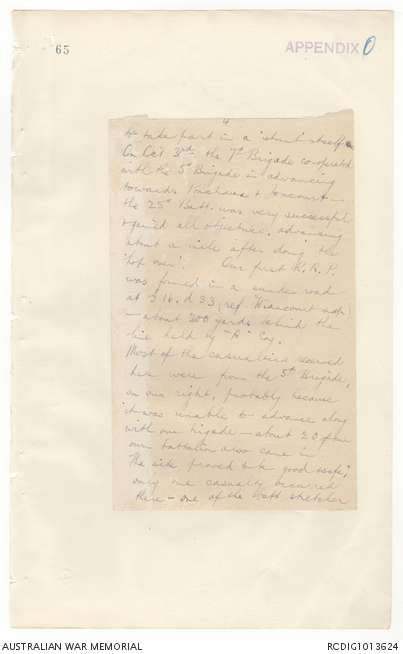 65
APPENDIX O
4
to take part in a 'stunt' itself
On Oct 3rd the 7th Brigade co-operated
with the 5th Brigade in advancing
towards &
the 25th Batt. was very successful
gained all objectives, advancing
about a mile after doing the
'hop over'. Our first R.A.P.
was formed in a sunken road
at 33 (ref. map)
- about 200 yards behind the
line held by "A" Coy.
Most of the casualties received
here were from the 5th Brigade,
on our right, probably because
it was unable to advance along
with our brigade - about 20 of our
own battalion also came in
The site proved to be good &
only one casualty occurred
there - one of the batt stretcher
AUSTRALIAN WAR MEMORIAL
RCDIG1013624